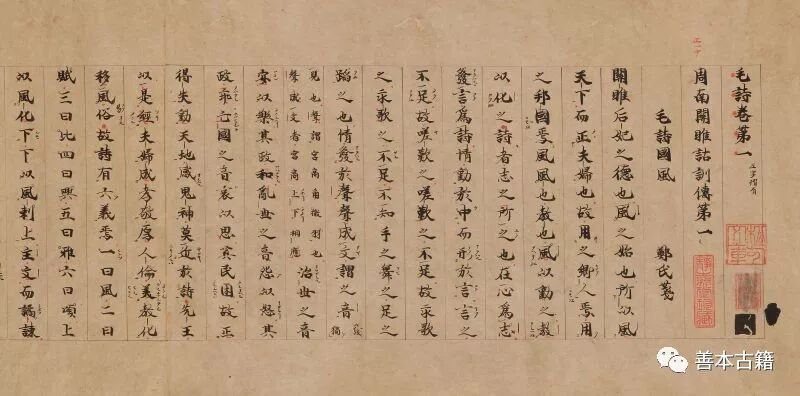 毛詩卷第一
周南關雎詁訓傳第一
毛詩國風 鄭氏箋
關雎后妃之德也風之始也所以風
天下而正夫婦也故用之鄉人焉用
之邦國焉風風也教也風以動之教
以化之詩者志之所之也在心爲志
發言爲詩情動於中而形於言言之
不足故嗟歎之嗟歎之不足故永歌
之永歌之不足不知手之舞之足之
蹈之也情發於聲聲成文謂之音猶
見也聲謂宮商角徵羽也聲成文者宮商上下相應治世之音
安以樂其政和亂世之音怨以怒其
政乖亡國之音哀以思其民困故正
得失動天地感鬼神莫近於詩先王
以是經夫婦成孝敬厚人倫美教化
移風俗故詩有六義焉一曰風二曰
賦三曰比四曰興五曰雅六曰頌上
以風化下下以風刺上主文而譎諫
善本古籍